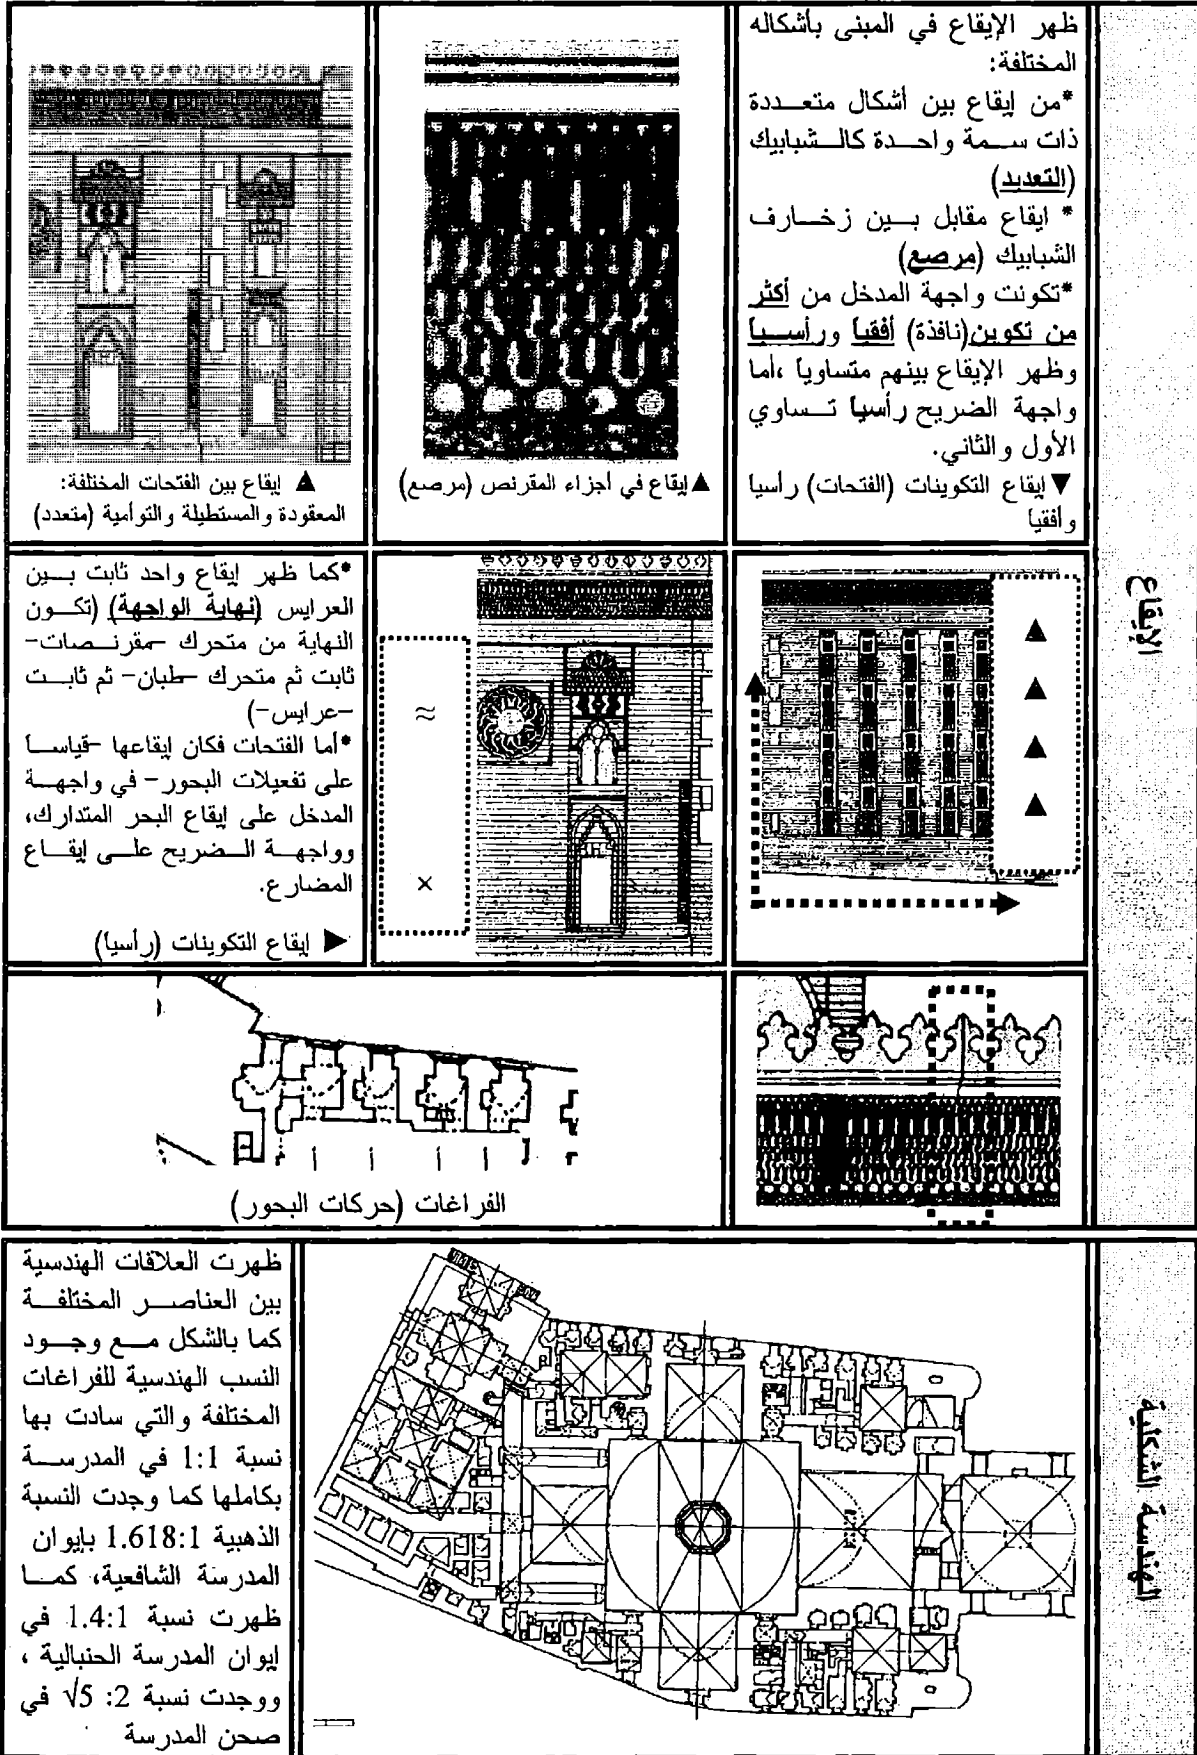 ظهر الإيقاع في المبنى بأشكاله
المختلفة:
*من إيقاع بين أشكال متعددة
ذات سمة واحدة كالشبابيك
(التعديد)
* ايقاع مقابل بين زخارف
الشبابيك (مرصع)
*تكونت واجهة المدخل من أكثر
من تكوين(نافذة) أفقياً ورأسياً
وظهر الإيقاع بينهم متساوياً ،أما
واجهة الضريح رأسياً تساوي
الأول والثاني.
▼ إيقاع التكوينات (الفتحات) رأسيا
وأفقيا
▲إيقاع في أجزاء المقرنص (مرصع)
▲ إيقاع بين الفتحات المختلفة:
المعقودة والمستطيلة والتوأمية (متعدد)
الإيقاع
▲
▲
▲
▲
≈
×
*كما ظهر إيقاع واحد ثابت بين
العرايس (نهاية الواجهة) (تكون
النهاية من متحرك -مقرنصات-
ثابت ثم متحرك -طبان- ثم ثابت
-عرايس-)
*أما الفتحات فكان إيقاعها -قياساً
على تفعيلات البحور- في واجهة
المدخل على إيقاع البحر المتدارك،
وواجهة الضريح على إيقاع
المضارع.
◄ إيقاع التكوينات (رأسيا)
الفراغات (حركات البحور)
الهندسة الشكلية
ظهرت العلاقات الهندسية
بين العناصر المختلفة
كما بالشكل مع وجود
النسب الهندسية للفراغات
المختلفة والتي سادت بها
نسبة 1:1 في المدرسة
بكاملها كما وجدت النسبة
الذهبية 1.618:1 بإيوان
المدرسة الشافعية، كما
ظهرت نسبة 1.4:1 في
إيوان المدرسة الحنبالية ،
ووجدت نسبة 2: 5√ في
صحن المدرسة